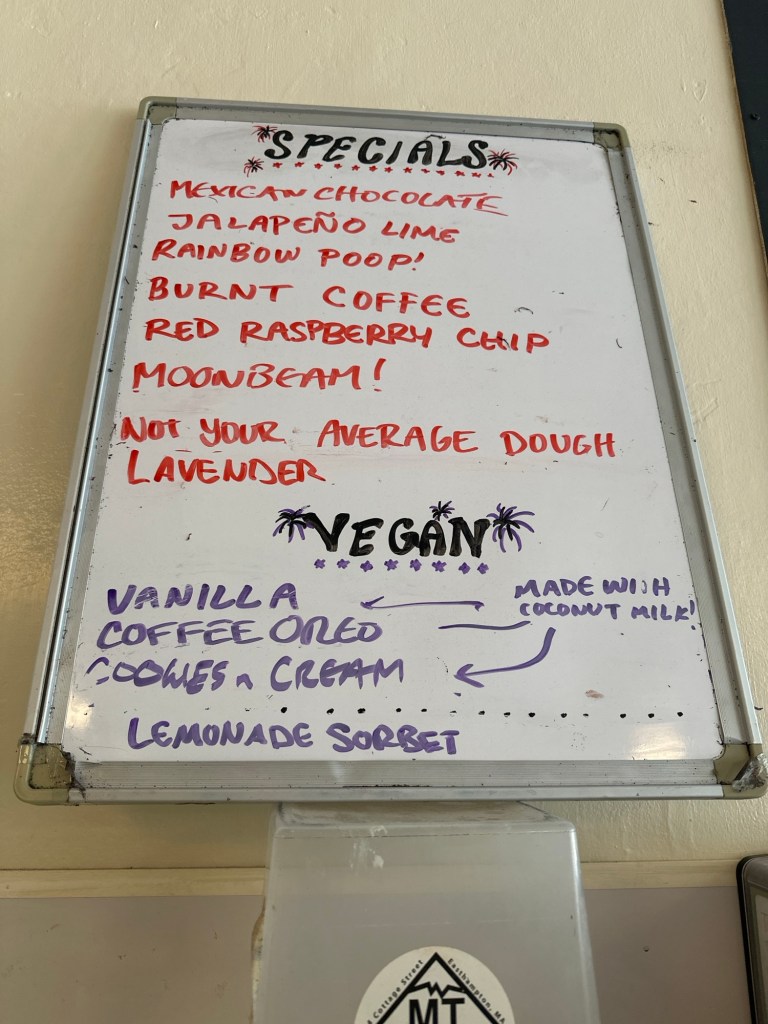 SPECIALS
MEXICAN CHOCOLATE
JALAPEÑO LIME
RAINBOW POOP!
BURNT COFFEE
RED RASPBERRY CHIP
MOONBEAM!
NOT YOUR AVERAGE DOUGH
LAVENDER
VEGAN
VANILLA
COFFEE OREO
COOKIES n CREAM
MADE WITH
COCONUT MILK!
LEMONADE SORBET
Cottage Street
Easthampton, MA
MT